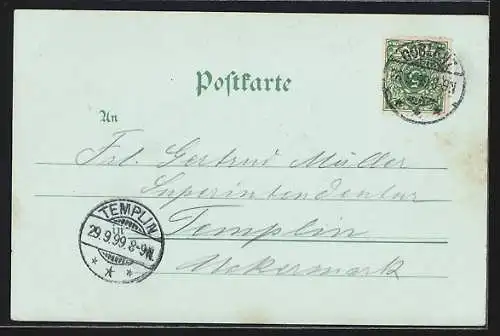 Postkarte
An
Frl. Gertrud Müller
Superintendentur
Templin
Uckermark
TEMPLIN
29.9.99.8-9N.